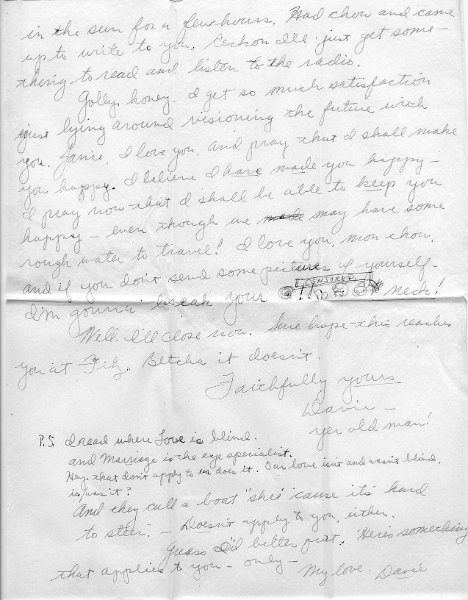 in the sun for a few hours. Had chow and came
up to write to you. Reckon I'll just get some-
thing to read and listen to the radio.
Golly, honey. I get so much satisfaction
just lying around visioning the future with
you. Janie, I love you and pray that I shall make
you happy. I believe I have made you happy —
I pray now that I shall be able to keep you
happy — even though we made may have some
rough water to travel! I love you, mon chou.
and if you don't send some pictures of yourself
I'm gonna break your CENSORED neck!
Well I'll close now. Sure hope this reaches
you at Fitz. Betcha it doesn't.
Faithfully yours
Davie —
yer old man!
P.S. I read where Love is blind.
and Marriage is the eye specialist.
Hey, that don't apply to us, does it. Our love isn't and wasn't blind.
is/was it?
And they call a boat "she" 'cause it's hard
to steer. — Doesn't apply to you, either.
Guess I'd better quit. Here's something
that applies to you — only —
My love. Davie